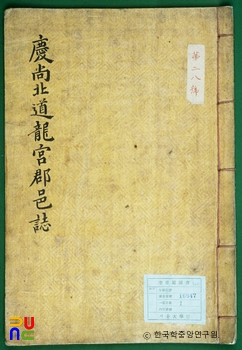 慶尚北道龍宮郡邑誌
第二八號
10547
1
ⓒ 한국학중앙연구원